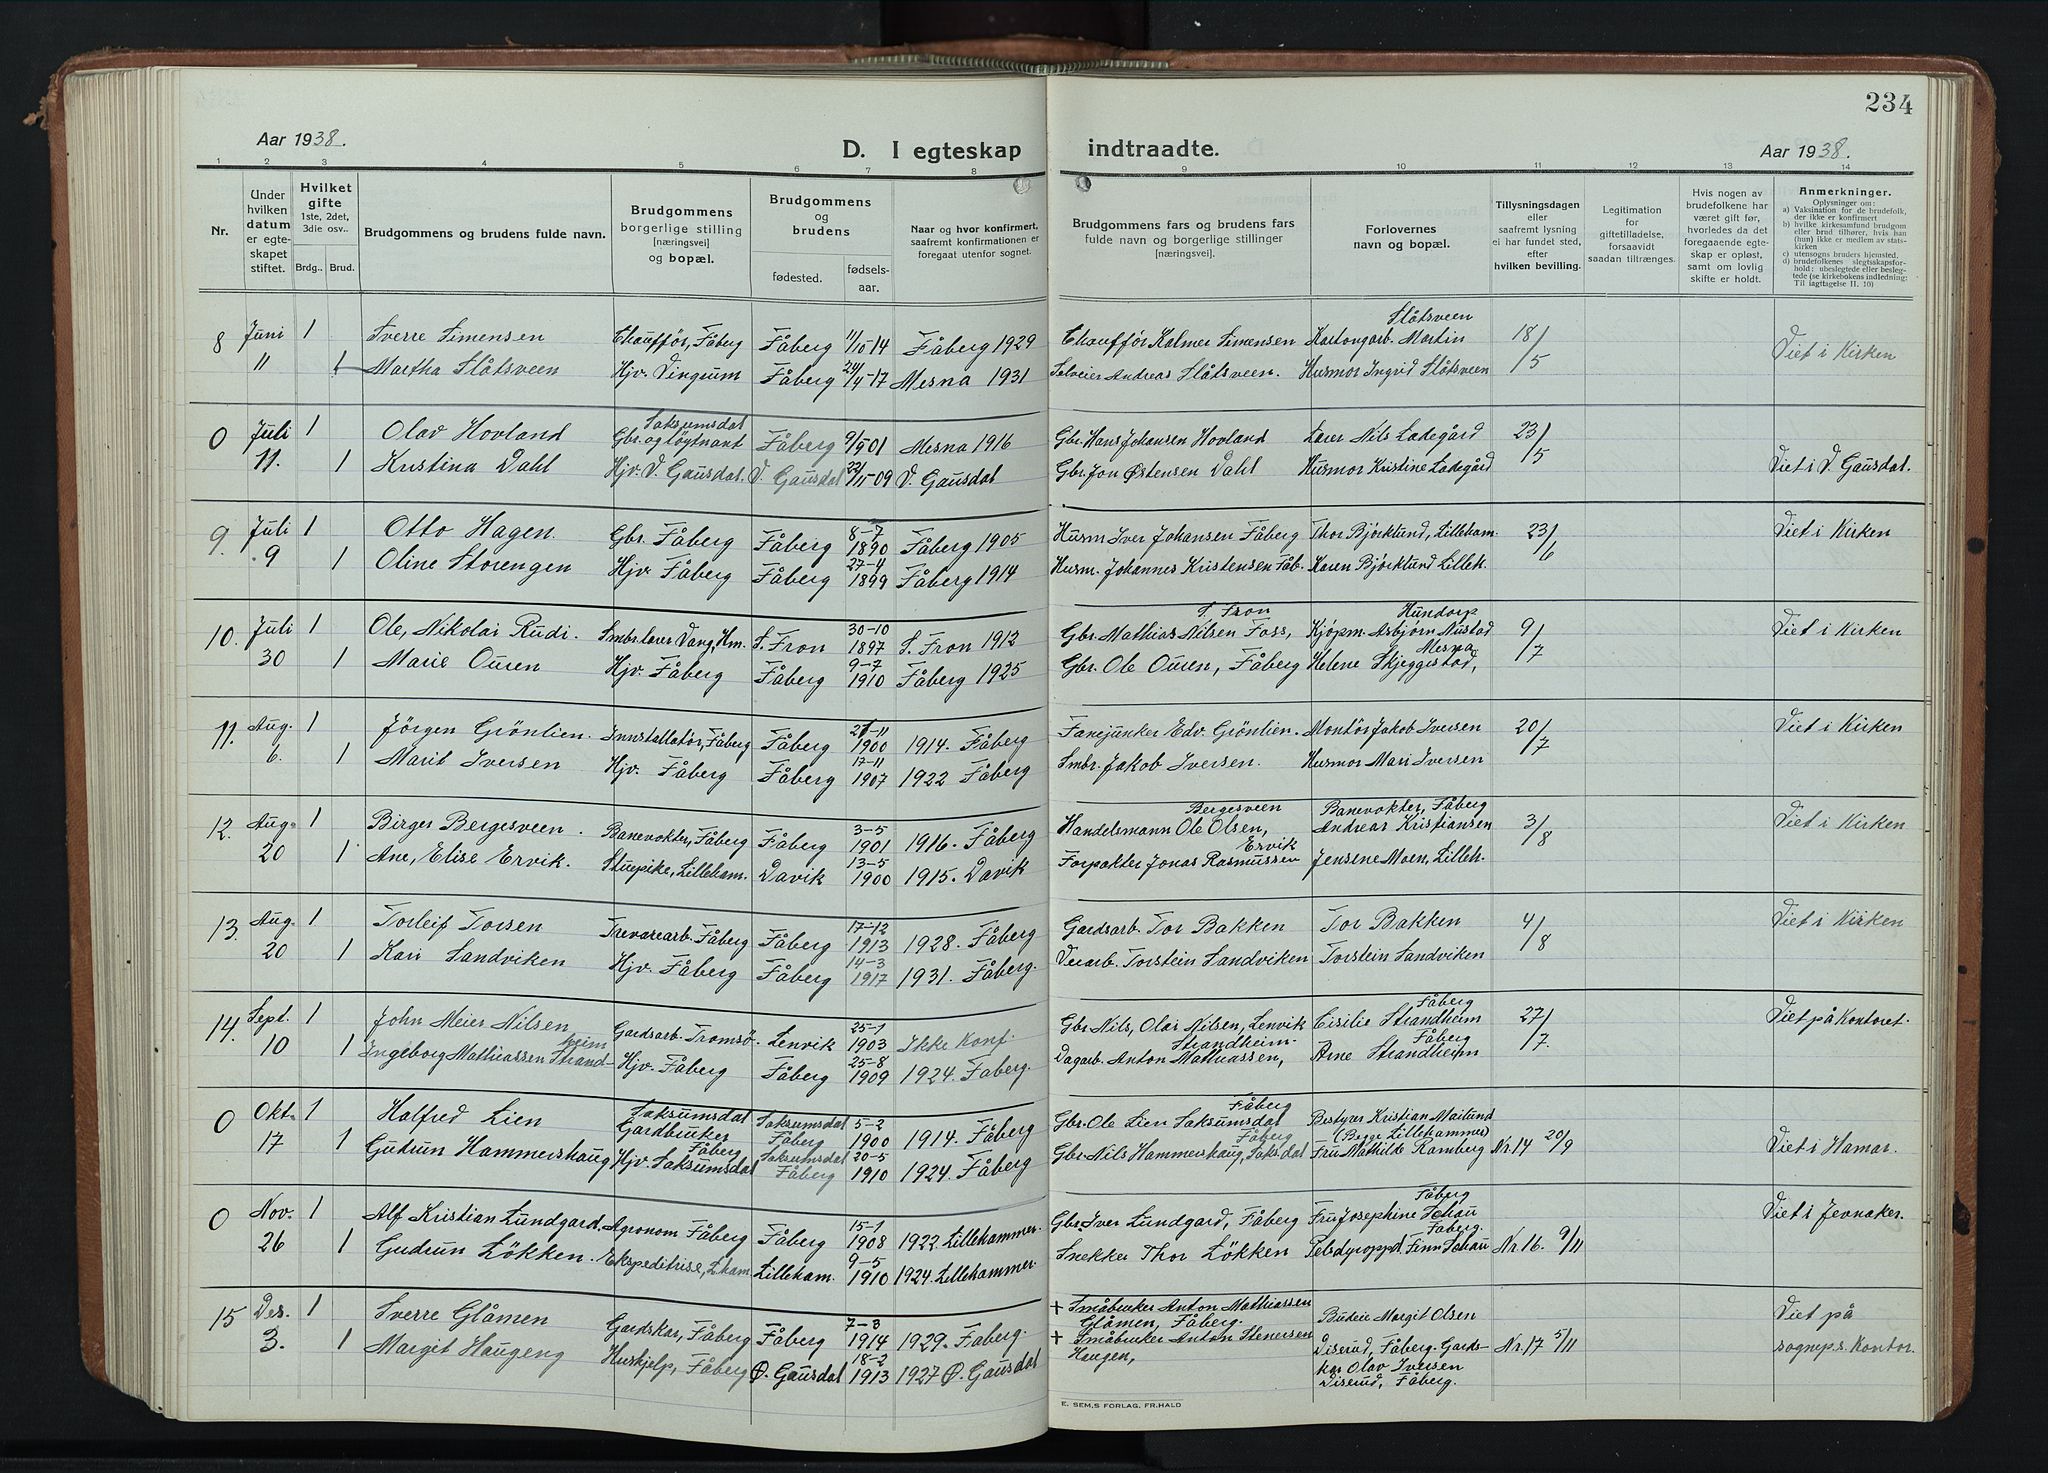 234
Aar 1938.
D. I egteskap indtraadte.
Aar 1938.
1 2 3 4 5 6 7 8 9 10 11 12 13 14
Nr.
Under hvilken datum er egteskapet stiftet.
Hvilket gifte 1ste, 2det, 3die osv..
Brdg.. Brud.
Brudgommens og brudens fulde navn.
Brudgommens borgerlige stilling [næringsvei] og bopæl.
Brudgommens og brudens
fødested. fødsels-aar.
Naar og hvor konfirmert, saafremt konfirmationen er foregaat utenfor sognet.
Brudgommens fars og brudens fars fulde navn og borgerlige stillinger [næringsvei].
Forlovernes navn og bopæl.
Tillysningsdagen eller saafremt lysning ei har fundet sted, efter hvilken bevilling.
Legitimation for giftetilladelse, forsaavidt saadan tiltrænges.
Hvis nogen av brudefolkene har været gift før, hvorledes da det foregaaende egteskap er opløst, samt om lovlig skifte er holdt.
Anmerkninger.
Oplysninger om:
a) Vaksination for de brudefolk, der ikke er konfirmert
b) hvilke kirkesamfund brudgom eller brud tilhører, hvis han (hun) ikke er medlem av statskirken
c) utensogns bruders hjemsted.
d) brudefolkenes slegtsskapsforhold: ubeslegtede eller beslegtede (se kirkebokens indledning: Til iagttagelse II. 10)
8 Juni 1 Sverre Simensen Chauffør, Fåberg Fåberg 11/10-14 Fåberg 1929 Chauffør Kalmer Simensen Kartongarb. Martin Slåtsveen 18/5 Viet i Kirken
11 1 Martha Slåtsveen Hjv. Vingrom Fåberg 24/4-17 Mesna 1931 Selveier Andreas Slåtsveen. Husmor Ingrid Slåtsveen
0 Juli 1 Olav Hovland Saksumsdal Gbr. og løytnant Fåberg 9/5 01 Mesna 1916 Gbr. Hans Johansen Hovland Lærer Nils Ladegård 23/5
11. 1 Kristina Dahl Hjv. V. Gausdal. V. Gausdal 22/11-09 V. Gausdal Gbr. Jon Østensen Dahl Husmor Kristine Ladegård Viet i V. Gausdal.
9. Juli 1 Otto Hagen. Gbr. Fåberg Fåberg 8-7 1890 Fåberg 1905 Husm. Iver Johansen Fåberg Thor Bjørklund, Lilleham. 23/6 Viet i Kirken
9 1 Oline Storengen Hjv. Fåberg Fåberg 27-4 1899 Fåberg 1914 Husm. Johannes Kristensen Fåb. Karen Bjørklund Lilleh.
10. Juli 1 Ole, Nikolai Rudi. Smbr.lærer Vang, Hm. S. Fron 30-10 1897 S. Fron 1912 Gbr. Mathias Nilsen Foss, S. Fron Kjøpm. Asbjørn Austad Hundorp 9/7 Viet i Kirken
30 1 Marie Ouren Hjv. Fåberg Fåberg 9-7 1910 Fåberg 1925 Gbr. Ole Ouren, Fåberg Helene Skjeggestad, Mesna
11. Aug. 1 Jörgen Grönlien. Innstallatør, Fåberg Fåberg 21-11 1900 1914. Fåberg Fanejunker Edv. Grönlien. Montör Jakob Iversen 20/7 Viet i Kirken
6. 1 Marit Iversen Hjv. Fåberg Fåberg 17-11 1907 1922 Fåberg Smbr. Jakob Iversen. Husmor Mari Iversen
12. Aug. 1 Birger Bergesveen. Banevokter, Fåberg Fåberg 3-5 1901 1916. Fåberg Handelsmann Ole Olsen, Bergesveen Banevokter, Fåberg Andreas Kristiansen 3/8 Viet i Kirken
20 1 Ane, Elise Ervik. Stuepike, Lilleham. Davik 13-5 1900 1915. Davik Forpakter Jonas Rasmussen Ervik Jensene Moen, Lilleh.
13. Aug. 1 Torleif Torsen Trevarearb. Fåberg Fåberg 17-12 1913 1928. Fåberg Gardsarb. Tor Bakken Tor Bakken 4/8 Viet i Kirken
20 1 Kari Sandviken Hjv. Fåberg Fåberg 14-3 1917 1931. Fåberg. Veiarb. Torstein Sandviken Torstein Sandviken
14. Sept. 1 John Meier Nilsen Gardsarb. Tromsø. Lenvik 25-1 1903 Ikke Konf. Gbr. Nils, Olai Nilsen, Lenvik Cisilie Strandheim Fåberg 27/7. Viet på Kontoret.
10 1 Ingeborg Mathiassen Strandheim Hjv. Fåberg Fåberg 25-8 1909 1924. Faberg. Dagarb. Anton Mathiassen, Strandheim Arne Strandheim Fåberg
0 Okt. 1 Halfred Lien Saksumsdal Gardbruker Fåberg Saksumsdal Fåberg 5-2 1900 1914. Fåberg Gbr. Ole Lien Saksumsdal Fåberg Bestyrer Kristian Mailund (Berge Lillehammer)
17 1 Gudrun Hammershaug Hjv. Saksumsdal Saksumsdal Fåberg 20-5 1910 1924. Fåberg Gbr. Nils Hammershaug, Saks.dal Fåberg Fru Mathilde Ramberg Nr. 14 20/9 Viet i Hamar.
0 Nov. 1 Alf Kristian Lundgard. Agronom Fåberg Fåberg 15-1 1908 1922. Lillehammer. Gbr. Iver Lundgard, Fåberg Fru Josephine Schau Fåberg Viet i Jevnaker.
26 1 Gudrun Lökken. Ekspeditrise, L.ham. Lilleham. 9-5 1910 1924. Lillehammer. Snekker Thor Lökken Pelsdyroppd. Finn Schau Faberg. Nr. 16. 9/11
15 Des. 1 Sverre Glåmen Gardskar, Fåberg Fåberg 7-3 1914 1929. Faberg. + Småbruker Anton Mathiassen Glåmen, Fåberg. Budeie Margit Olsen Viet på
3. 1 Margit Haugeng Huskjelp, Fåberg Ø. Gausdal 18-2 1913 1927 Ø. Gausdal + Småbruker Anton Stenersen Haugen, Diserud, Fåberg. Gardskar Olav Iversen Diserud, Fåberg. Nr. 17 5/11 sognepr.s. Kontor.
E. SEM,S FORLAG, FR.HALD